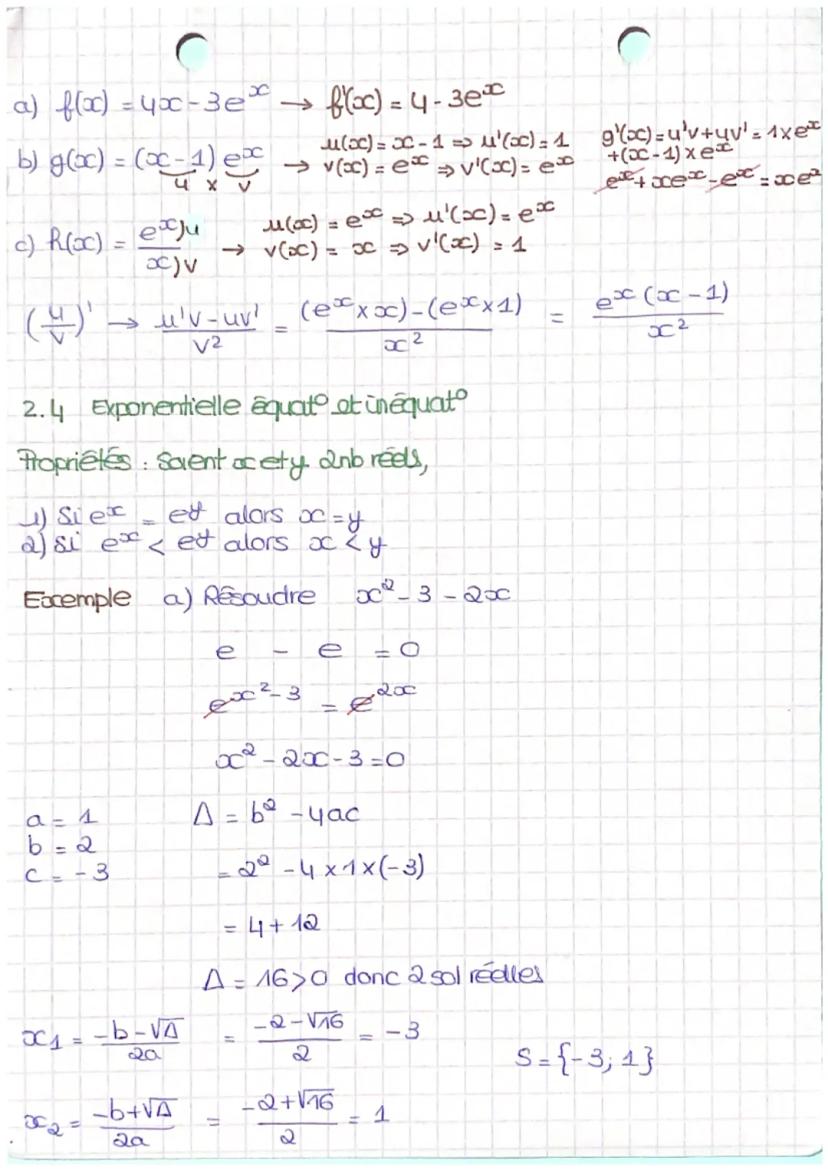 a) f(x) = 4x - 3e^x → f'(x) = 4 - 3e^x
b) g(x) = (x-1) e^x → u(x) = x - 1 ⇒ u'(x) = 1
u × v
v(x) = e^x ⇒ v'(x) = e^x
g'(x) = u'v + uv' = 1×e^x
+(x-1)×e^x
e^x + xe^x - e^x = xe^x
c) h(x) = e^x)u / x)v → u(x) = e^x ⇒ u'(x) = e^x
v(x) = x ⇒ v'(x) = 1
(u/v)' → u'v - uv' / v² = (e^x × x) - (e^x × 1) / x² = e^x (x - 1) / x²
2.4 Exponentielle équat° et inéquat°
Propriétés : Soient x et y 2 nb réels,
1) Si e^x = e^y alors x = y
2) Si e^x < e^y alors x < y
Exemple a) Résoudre x² - 3 - 2x
e - e = 0
e^x²-3 = e^2x
x² - 2x - 3 = 0
a = 1
b = 2
c = -3
Δ = b² - 4ac
= 2² - 4 × 1 × (-3)
= 4 + 12
Δ = 16 > 0 donc 2 sol réelles
x₁ = -b - √Δ / 2a = -2 - √16 / 2 = -3
S = {-3; 1}
x₂ = -b + √Δ / 2a = -2 + √16 / 2 = 1